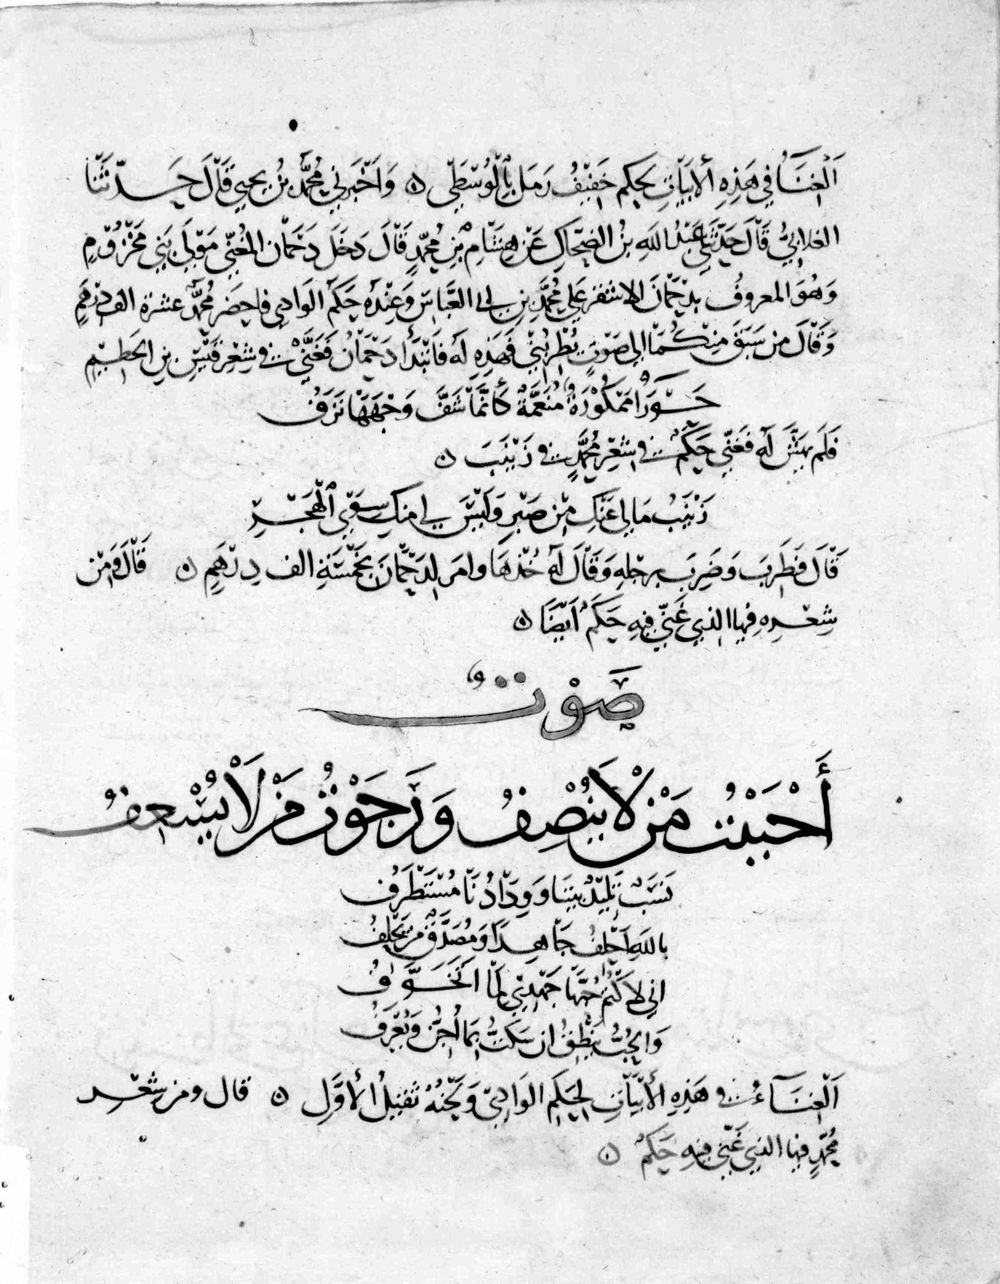 اَلْغِنَآءُ فِي هَذِهِ اَلأَبْيَاتِ لِحَكَمٍ خَفِيْفُ رَمَلٍ بِاَلْوُسْطَى ۞ وَاَخْبَرَنِي مُحَمَّدُ بْنُ يَحْيَى قَالَ حَدَّثَنَا
الغلابيُّ قَالَ حَدَّثَنِي عَبْدُ اللهِ بْنُ الضَّحَّاكِ عَنْ هِشَامِ بْنِ مُحَمَّدٍ قَالَ دَخَلَ دَحْمَانُ المُغَنِّي مَوْلَى بَنِي مَخْزُوْمٍ
وَهُوَ المعروفُ بِدَحْمَانَ الاشقرِ عَلَى مُحَمَّدِ بن ابي العَبَّاسِ وَعِنْدَهُ حَكَمُ الوادي فاحضرَ مُحَمَّدٌ عشرة الف دِرْهَمٍ
وَقَالَ مَن سَبَقَ مِنْكُمَا الى صَوْتٍ يُطْرِبُنِي فَهَذِهِ لَه فَابْتَدَأ دَحْمَانُ فَغَنَّى في شِعْرِ قَيْسِ بنِ الخطيم
حَوْرَاءُ مَمْكُوْرَةٌ مُنَعَّمَةٌ كَأَنَّمَا شَفَّ وَجْهَهَا نَزَفُ
فَلَم يَهَشَّ لَه فَغَنَّى حَكَمٌ في شِعْرِ مُحَمَّدٍ في زَيْنَبَ ۞
زَيْنَبُ مَا لِي عَنْكِ مِنْ صَبْرِ وَلَيْسَ لِي مِنكِ سِوَى اَلْهَجْرِ
قَالَ فَطَرِبَ وَضَرَبَ بِرِجْلِهِ وَقَالَ لَهُ خُذْهَا وامَر لِدَحْمَانَ بِخَمْسَةِ الف دِرْهَمٍ ۞ قَالَ وَمِنْ
شِعْرِهِ فيها الذي غَنَّى فِيْهِ حَكَمٌ اَيْضًا ۞
صَوْتٌ
أَحْبَبْتُ مَنْ لَا يُنْصِفُ وَرَجَوْتُ مَنْ لَا يُسْعِفُ
نَسَبٌ تَلِيْدٌ بيننا وَوِدَادُنَا مُسْتَطْرَفُ
باللهِ اَحْلِفُ جَاهِدًا وَمُصَدَّقٌ مَن يَحْلِفُ
اني لاَكْتُمُ حُبَّهَا جَهْدِي لِمَا اَتَخَوَّفُ
وَالحُبُّ يَنْطِقُ ان سَكَتُّ بِمَا اُجِنُّ وَيُعْرَفُ
اَلْغِنَآءُ في هَذِهِ اَلأَبْيَاتِ لِحَكَمِ الوادِي وَلَحْنُهُ ثَقِيْلُ الأَوَّلِ ۞ قال ومن شعْر
مُحَمَّدٍ فيها الذي غَنَّى فِيْهِ حَكَمٌ ۞